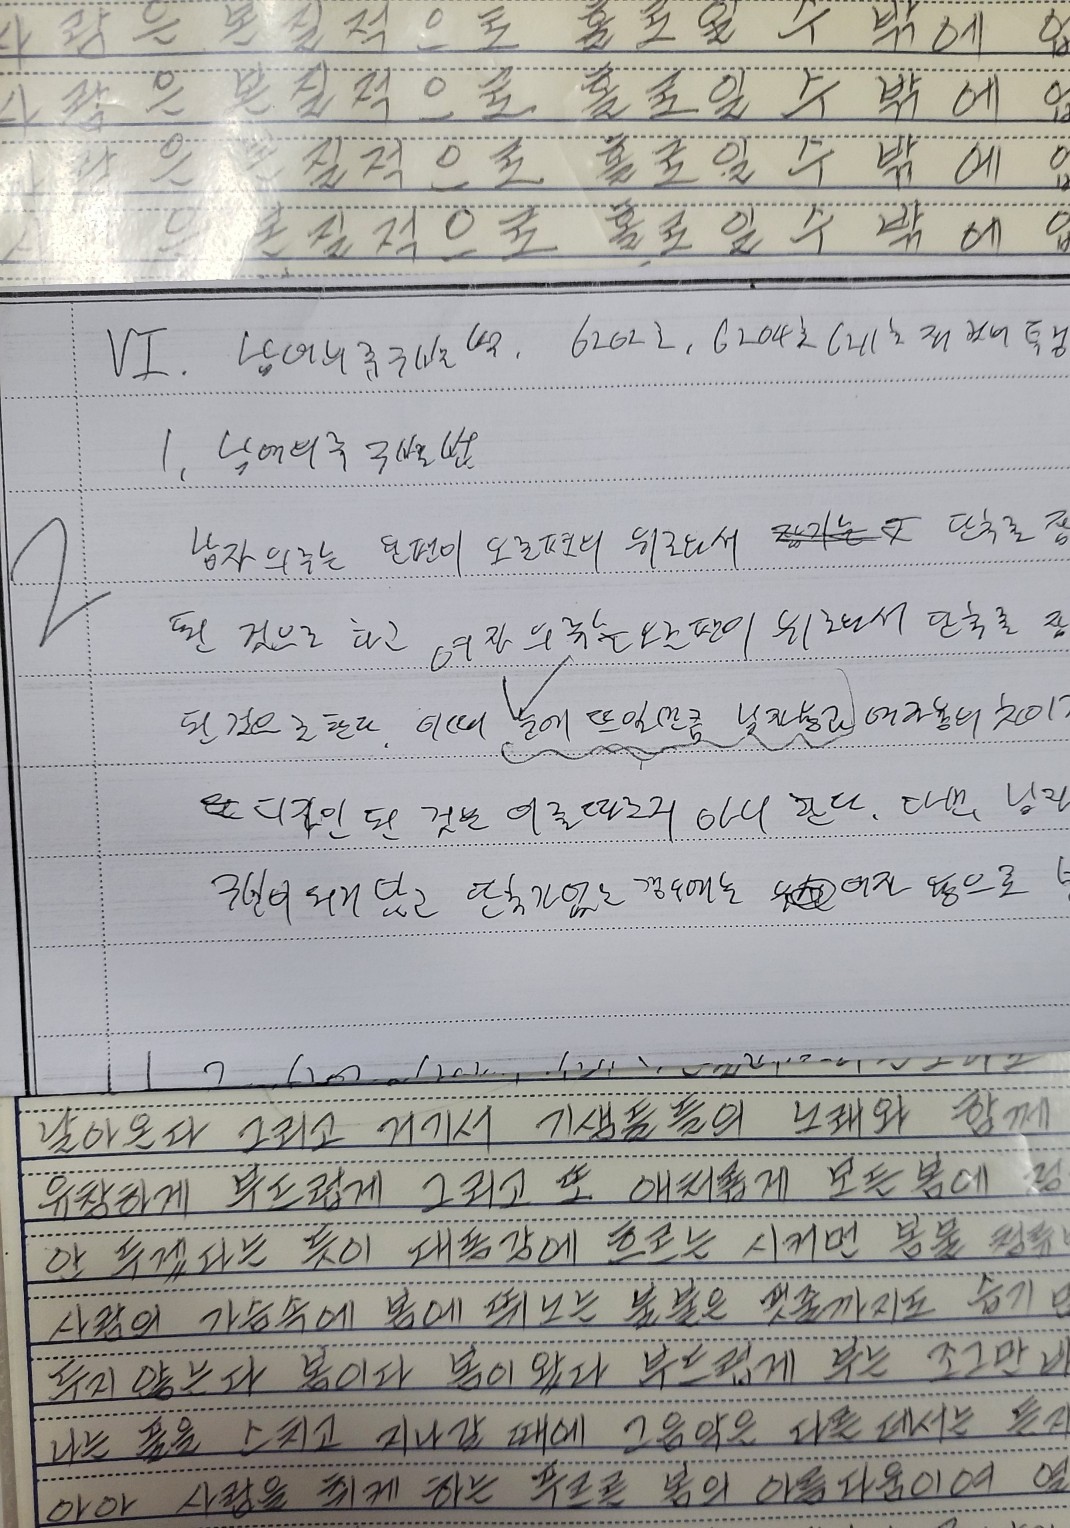 사람은 본질적으로 홀로일 수 밖에
사람은 본질적으로 홀로일 수 밖에
사람은 본질적으로 홀로일 수 밖에
은 본질적으로 홀로일 수 밖에
VI. 남녀의류구별법. 6202호, 6204호 6211호
1. 남녀의류 구별법
2
남자 의류는 왼편이 오른편의 위로와서 단추로
된 것으로 하고 여자 의류는 오른편이 위로와서 단추로
된 것으로 한다. 이때 눈에 뜨일만큼 남자용과 여자용의 차이가
디자인 된 것은 이를 따르지 아니 한다. 다만, 남자
구별이 되지 않고 단추가 없는 경우에는 여자 용으로
날아온다 그리고 거기서 기생들의 노래와 함께
유창하게 부드럽게 그리고 또 애처롭게 모든 봄에
안 두겠다는 듯이 대동강에 흐르는 시커먼 봄물
사람의 가슴속에 봄에 뛰노는 불붙은 핏줄까지도 습기
두지 않는다 봄이다 봄이 왔다 부드럽게 부는 조그만
나는 솔을 스치고 지나갈 때에 그 음악은 다른 데서는 듣지
아아 사람을 취케 하는 푸르른 봄의 아름다움이여